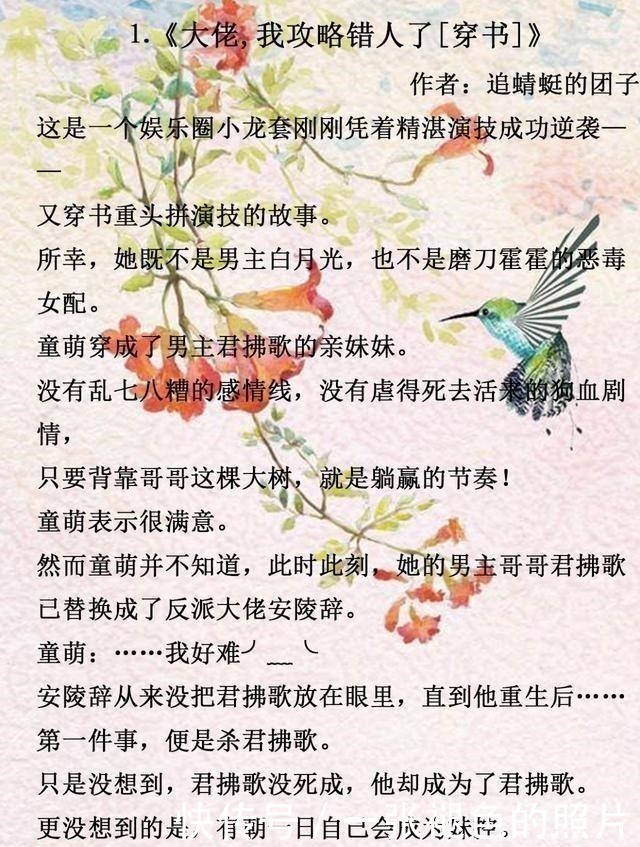 1.《大佬,我攻略错人了[穿书]》
作者：追蜻蜓的团子
这是一个娱乐圈小龙套刚刚凭着精湛演技成功逆袭—
—
又穿书重头拼演技的故事。
所幸，她既不是男主白月光，也不是磨刀霍霍的恶毒
女配。
童萌穿成了男主君拂歌的亲妹妹。
没有乱七八糟的感情线，没有虐得死去活来的狗血剧
情，
只要背靠哥哥这棵大树，就是躺赢的节奏！
童萌表示很满意。
然而童萌并不知道，此时此刻，她的男主哥哥君拂歌
已替换成了反派大佬安陵辞。
童萌：……我好难╯﹏╰
安陵辞从来没把君拂歌放在眼里，直到他重生后……
第一件事，便是杀君拂歌。
只是没想到，君拂歌没死成，他却成为了君拂歌。
更没想到的是，有朝一日自己会成为妹控。
快传号／一张褪色的照片